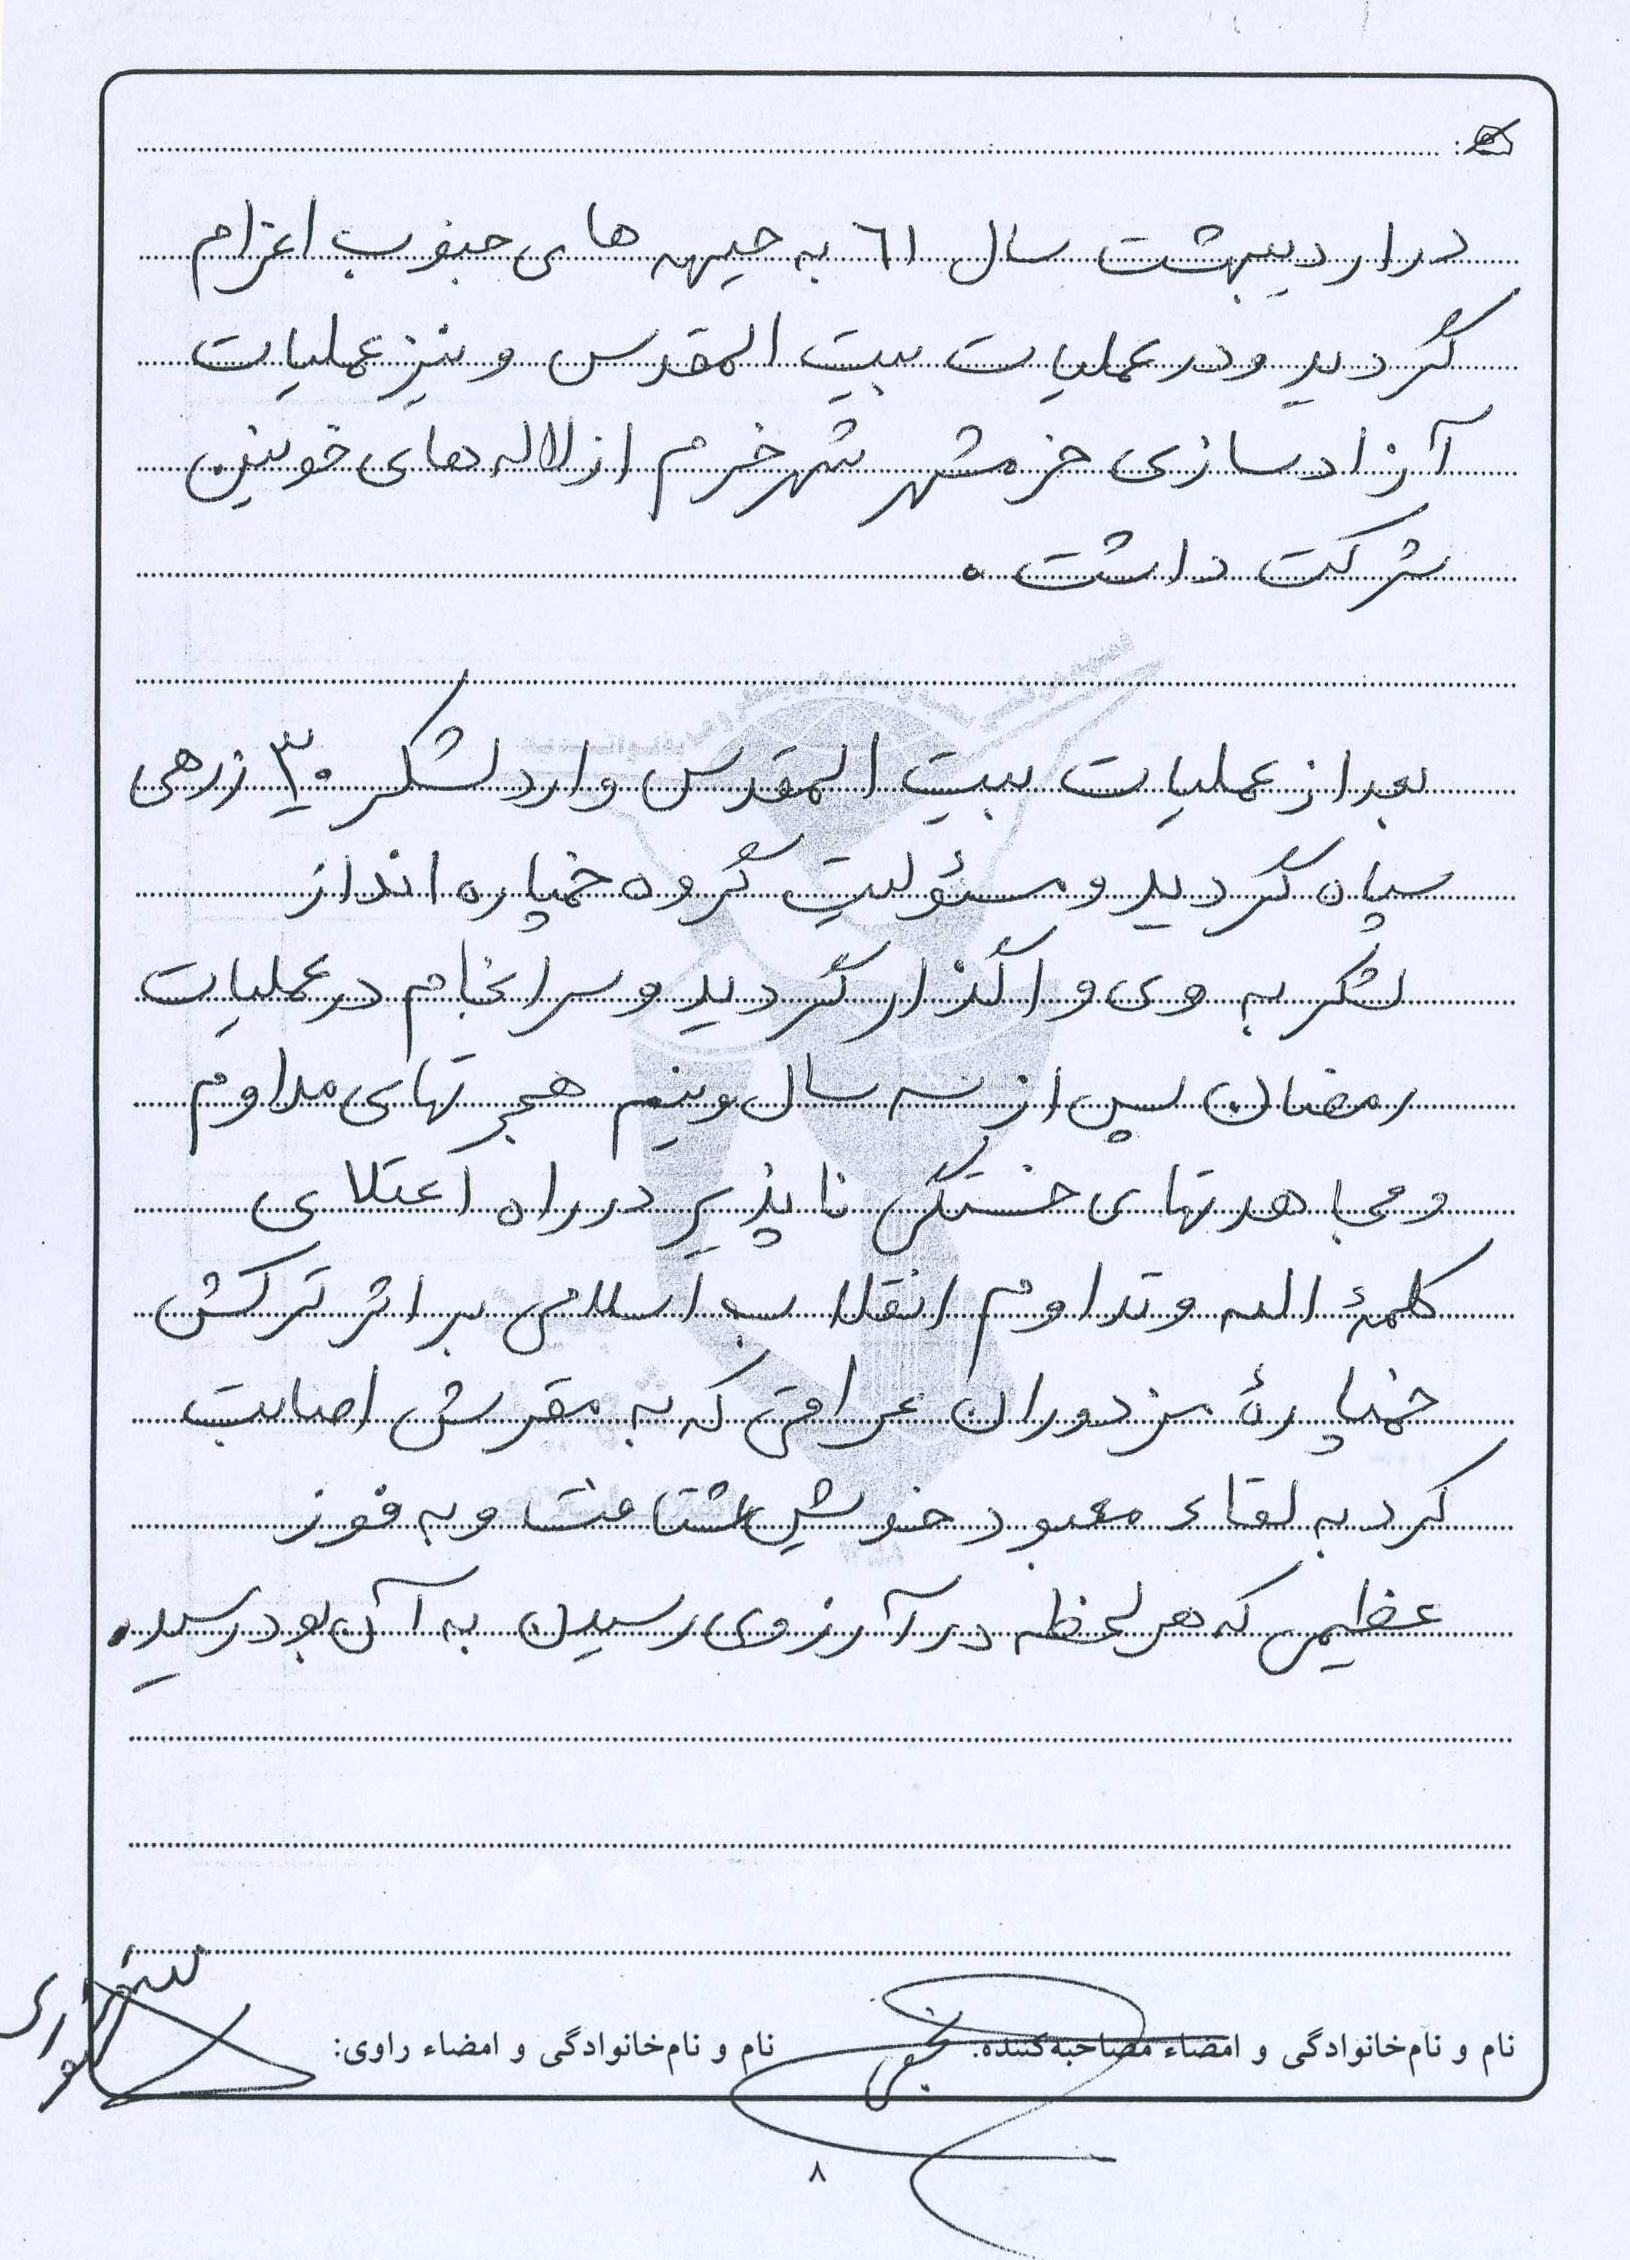 در اردیبهشت سال ٦١ به جبهه های جنوب اعزام
گردید و در عملیات بیت المقدس و نیز عملیات
آزادسازی خرمشهر شهر خرم از لاله های خونین
شرکت داشت .
بعد از عملیات بیت المقدس وارد لشکر ۳۰ زرهی
سپاه گردید و مسئولیت گروه خمپاره انداز
لشکر به وی واگذار گردید و سرانجام در عملیات
رمضان پس از سه سال و نیم هجرتهای مداوم
و مجاهدتهای خستگی ناپذیر در راه اعتلای
کلمهٔ الله و تداوم انقلاب اسلامی بر اثر ترکش
خمپارهٔ مزدوران عراقی که به مقرش اصابت
کرد به لقاء معبود خویش شتافت و به فوز
عظیمی که هر لحظه در آرزوی رسیدن به آن بود رسید.
نام و نام‌خانوادگی و امضاء مصاحبه‌کننده:
نام و نام‌خانوادگی و امضاء راوی:
۸